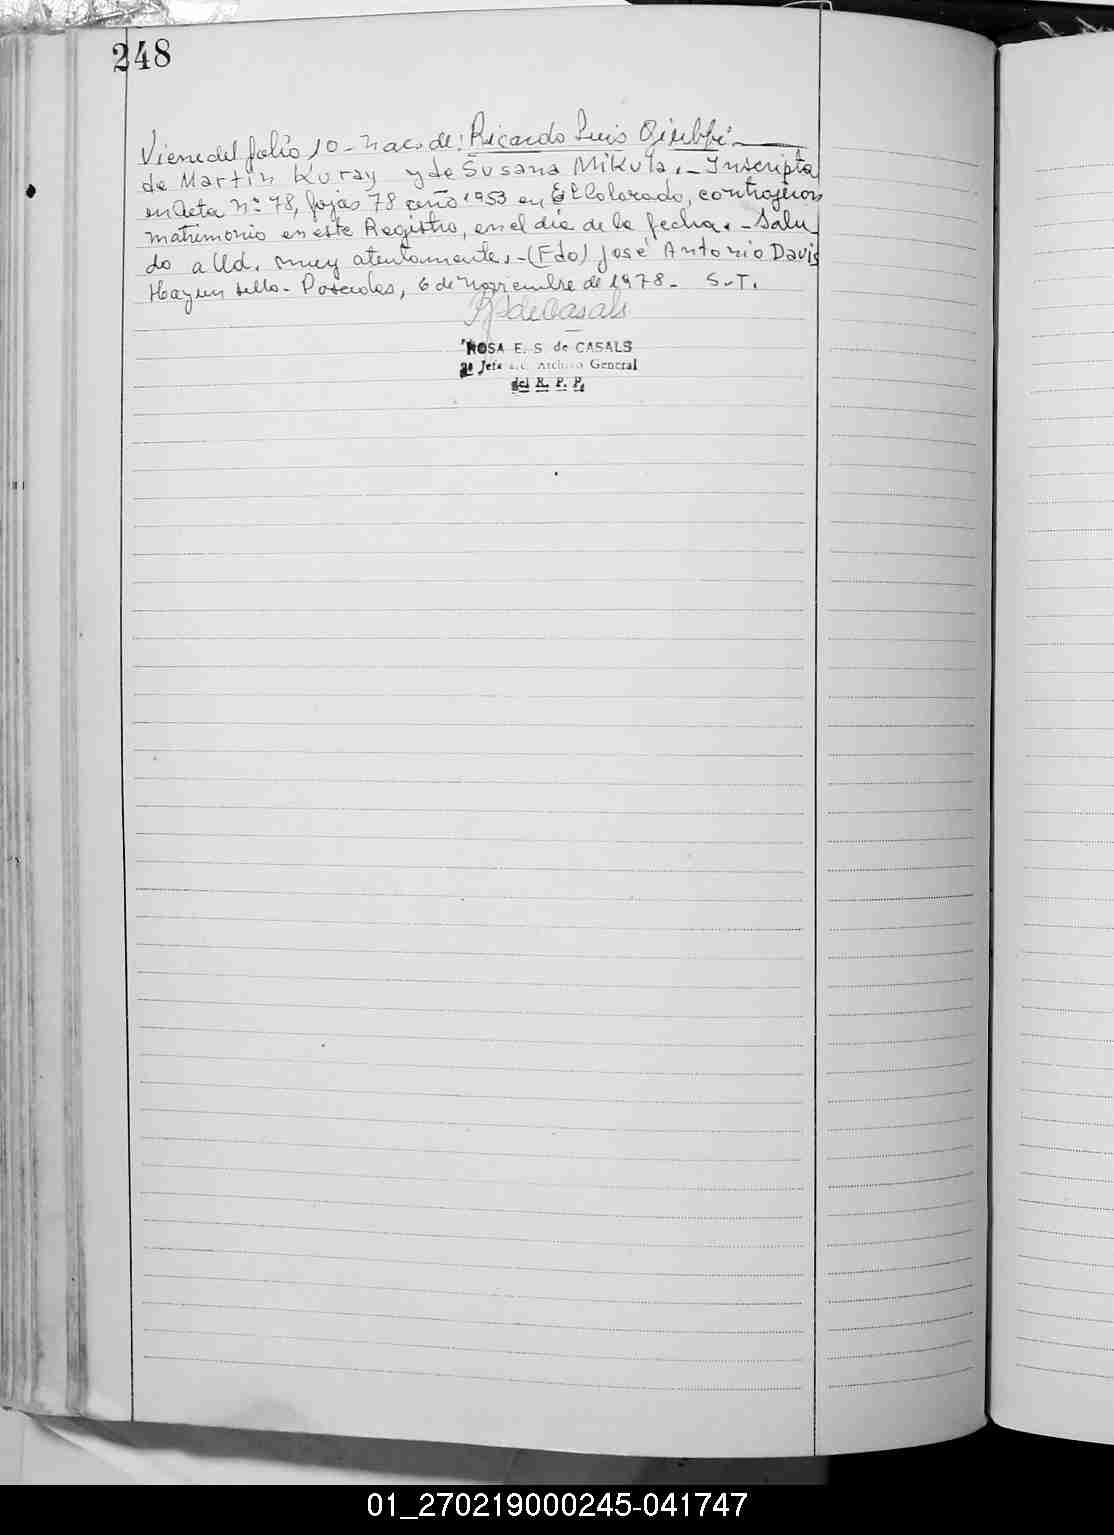 248
Viene del folio 10 - nac. de: Ricardo Luis
de Martin Kuray y de Susana Mikula. - Inscripta
en Acta Nº 78, fojas 78 año 1953 en El Colorado, contrajeron
matrimonio en este Registro, en el día de la fecha. - Salu-
do a Ud. muy atentamente. - (Fdo) José Antonio Davis
Hay un sello - Posadas, 6 de Noviembre de 1978 - S.T.
de Casals
ROSA E. S. de CASALS
Jefe Archivo General
del R. P. P.
01_270219000245-041747